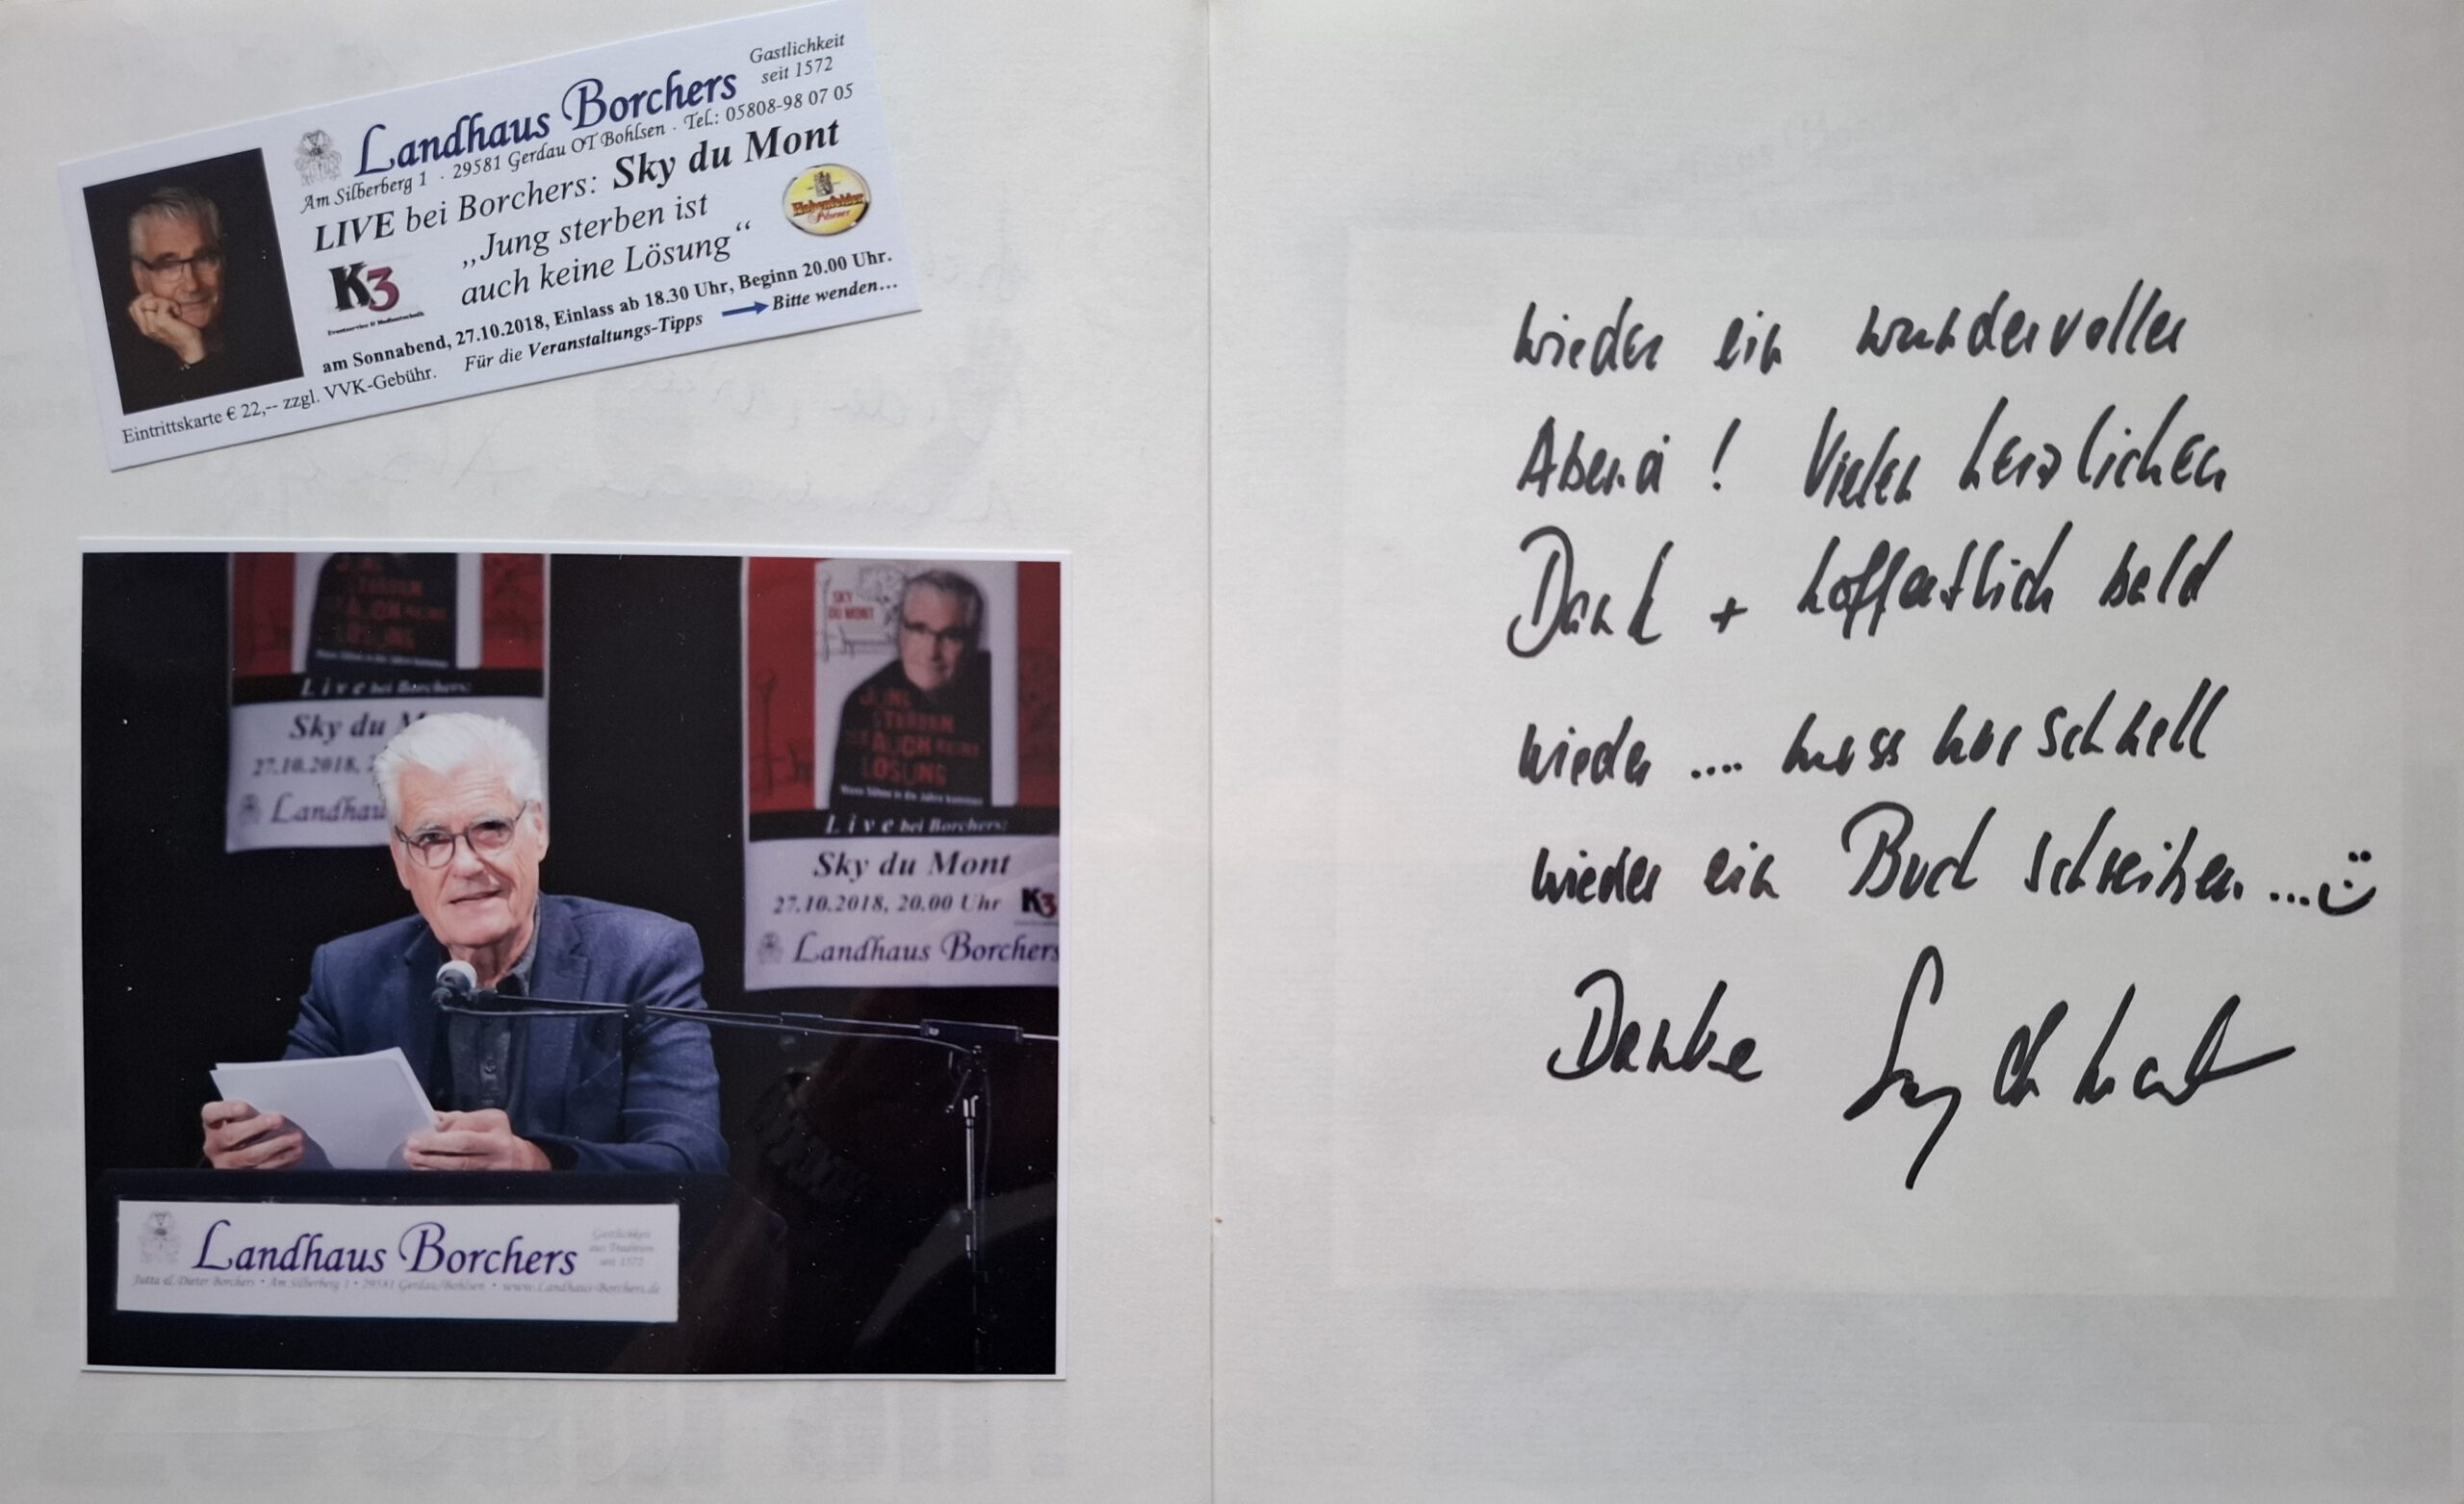 Gastlichkeit
seit 1572
Landhaus Borchers
Am Silberberg 1 · 29581 Gerdau OT Bohlsen · Tel.: 05808-98 07 05
LIVE bei Borchers: Sky du Mont
„Jung sterben ist
auch keine Lösung“
K3
Eventservice & Medientechnik
am Sonnabend, 27.10.2018, Einlass ab 18.30 Uhr, Beginn 20.00 Uhr.
Für die Veranstaltungs-Tipps Bitte wenden...
Eintrittskarte € 22,-- zzgl. VVK-Gebühr.
STERBEN
AUCH KEINE
LÖSUNG
Live bei Borchers:
Sky du M
27.10.2018, 2
Landhau
SKY
DU MONT
JUNG
STERBEN
IST AUCH KEINE
LÖSUNG
Live bei Borchers:
Sky du Mont
27.10.2018, 20.00 Uhr K3
Landhaus Borchers
Landhaus Borchers
Gastlichkeit
aus Tradition
seit 1572
Jutta & Dieter Borchers • Am Silberberg 1 • 29581 Gerdau/Bohlsen • www.Landhaus-Borchers.de
wieder ein wundervoller
Abend! Vielen herzlichen
Dank + hoffentlich bald
wieder .... muss nur schnell
wieder ein Buch schreiben ...
Danke Sky du Mont